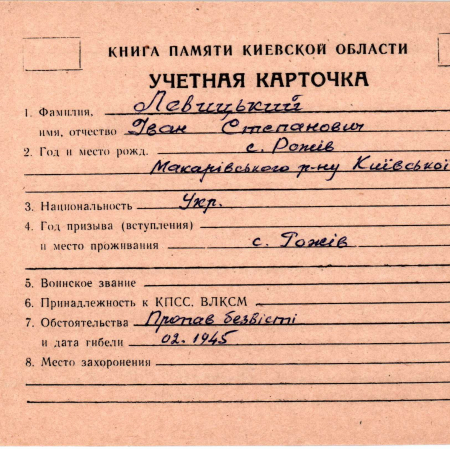 КНИГА ПАМЯТИ КИЕВСКОЙ ОБЛАСТИ
УЧЕТНАЯ КАРТОЧКА
1. Фамилия, Левицький
имя, отчество Іван Степанович
2. Год и место рожд. с. Рожів
Макарівського р-ну Київської
3. Национальность Укр.
4. Год призыва (вступления)
и место проживания с. Рожів
5. Воинское звание
6. Принадлежность к КПСС, ВЛКСМ
7. Обстоятельства Пропав безвісті
и дата гибели 02.1945
8. Место захоронения